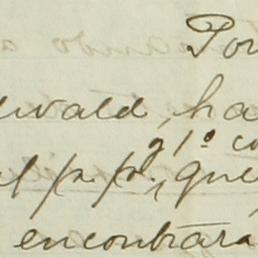 Por
ewald, ha
g 1º co
el p. p., que
encontrará